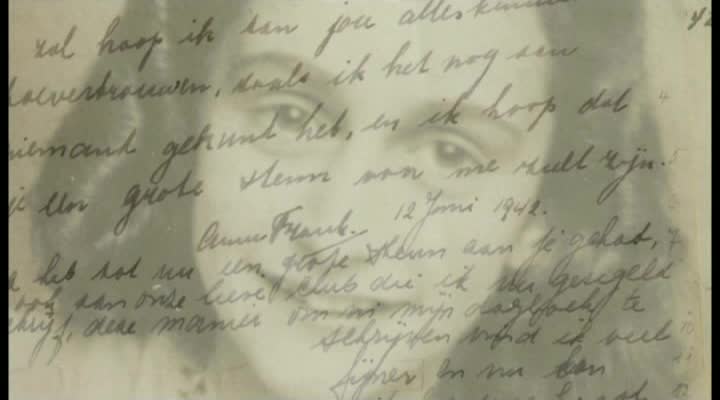 zal hoop ik aan jou alles kunnen
toevertrouwen, zoals ik het nog aan
niemand gekunt heb, en ik hoop dat
je een grote steun voor me zult zijn.
Anne Frank. 12 Juni 1942.
ik heb tot nu een grote steun aan je gehad,
ook aan onze lieve club die ik nu geregeld
schrijf, deze manier om in mijn dagboek te
schrijven vind ik veel
fijner en nu kan